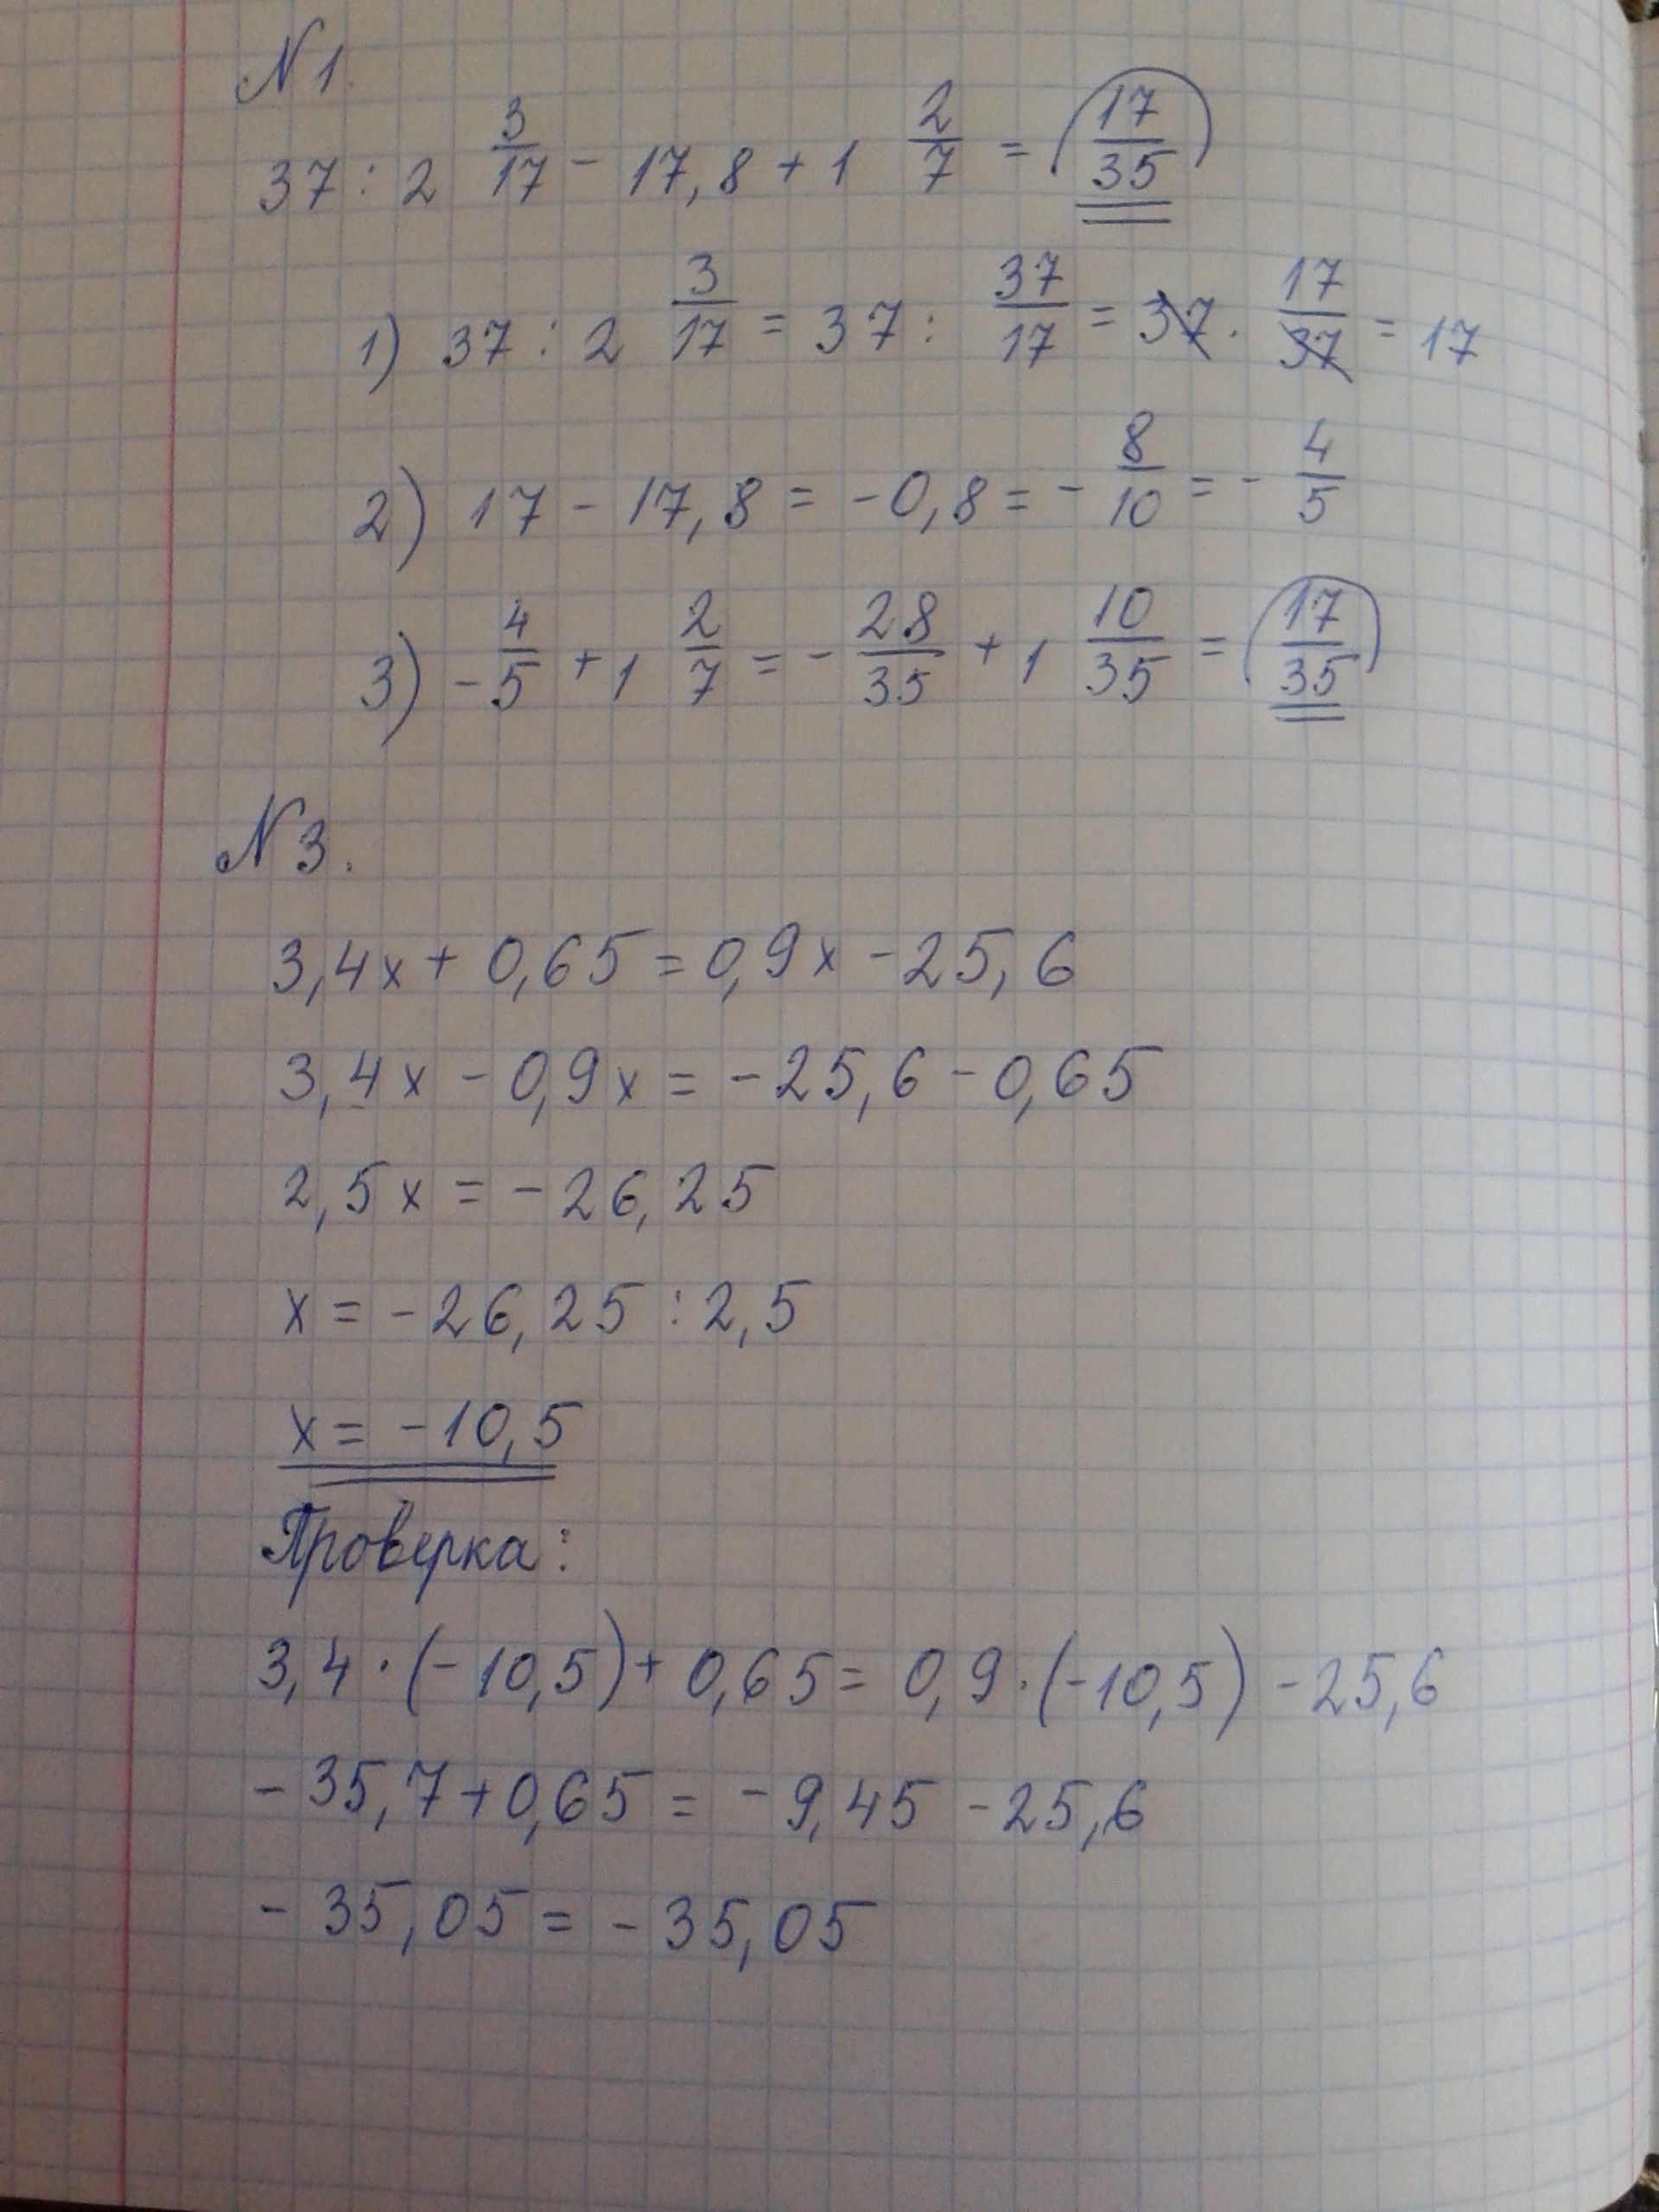 N 1.
37 : 2 3/17 - 17,8 + 1 2/7 = (17/35)
1) 37 : 2 3/17 = 37 : 37/17 = 37 · 17/37 = 17
2) 17 - 17,8 = -0,8 = - 8/10 = - 4/5
3) - 4/5 + 1 2/7 = - 28/35 + 1 10/35 = (17/35)
N 3.
3,4x + 0,65 = 0,9x - 25,6
3,4x - 0,9x = -25,6 - 0,65
2,5x = -26,25
x = -26,25 : 2,5
x = -10,5
Проверка:
3,4 · (-10,5) + 0,65 = 0,9 · (-10,5) - 25,6
-35,7 + 0,65 = -9,45 - 25,6
-35,05 = -35,05